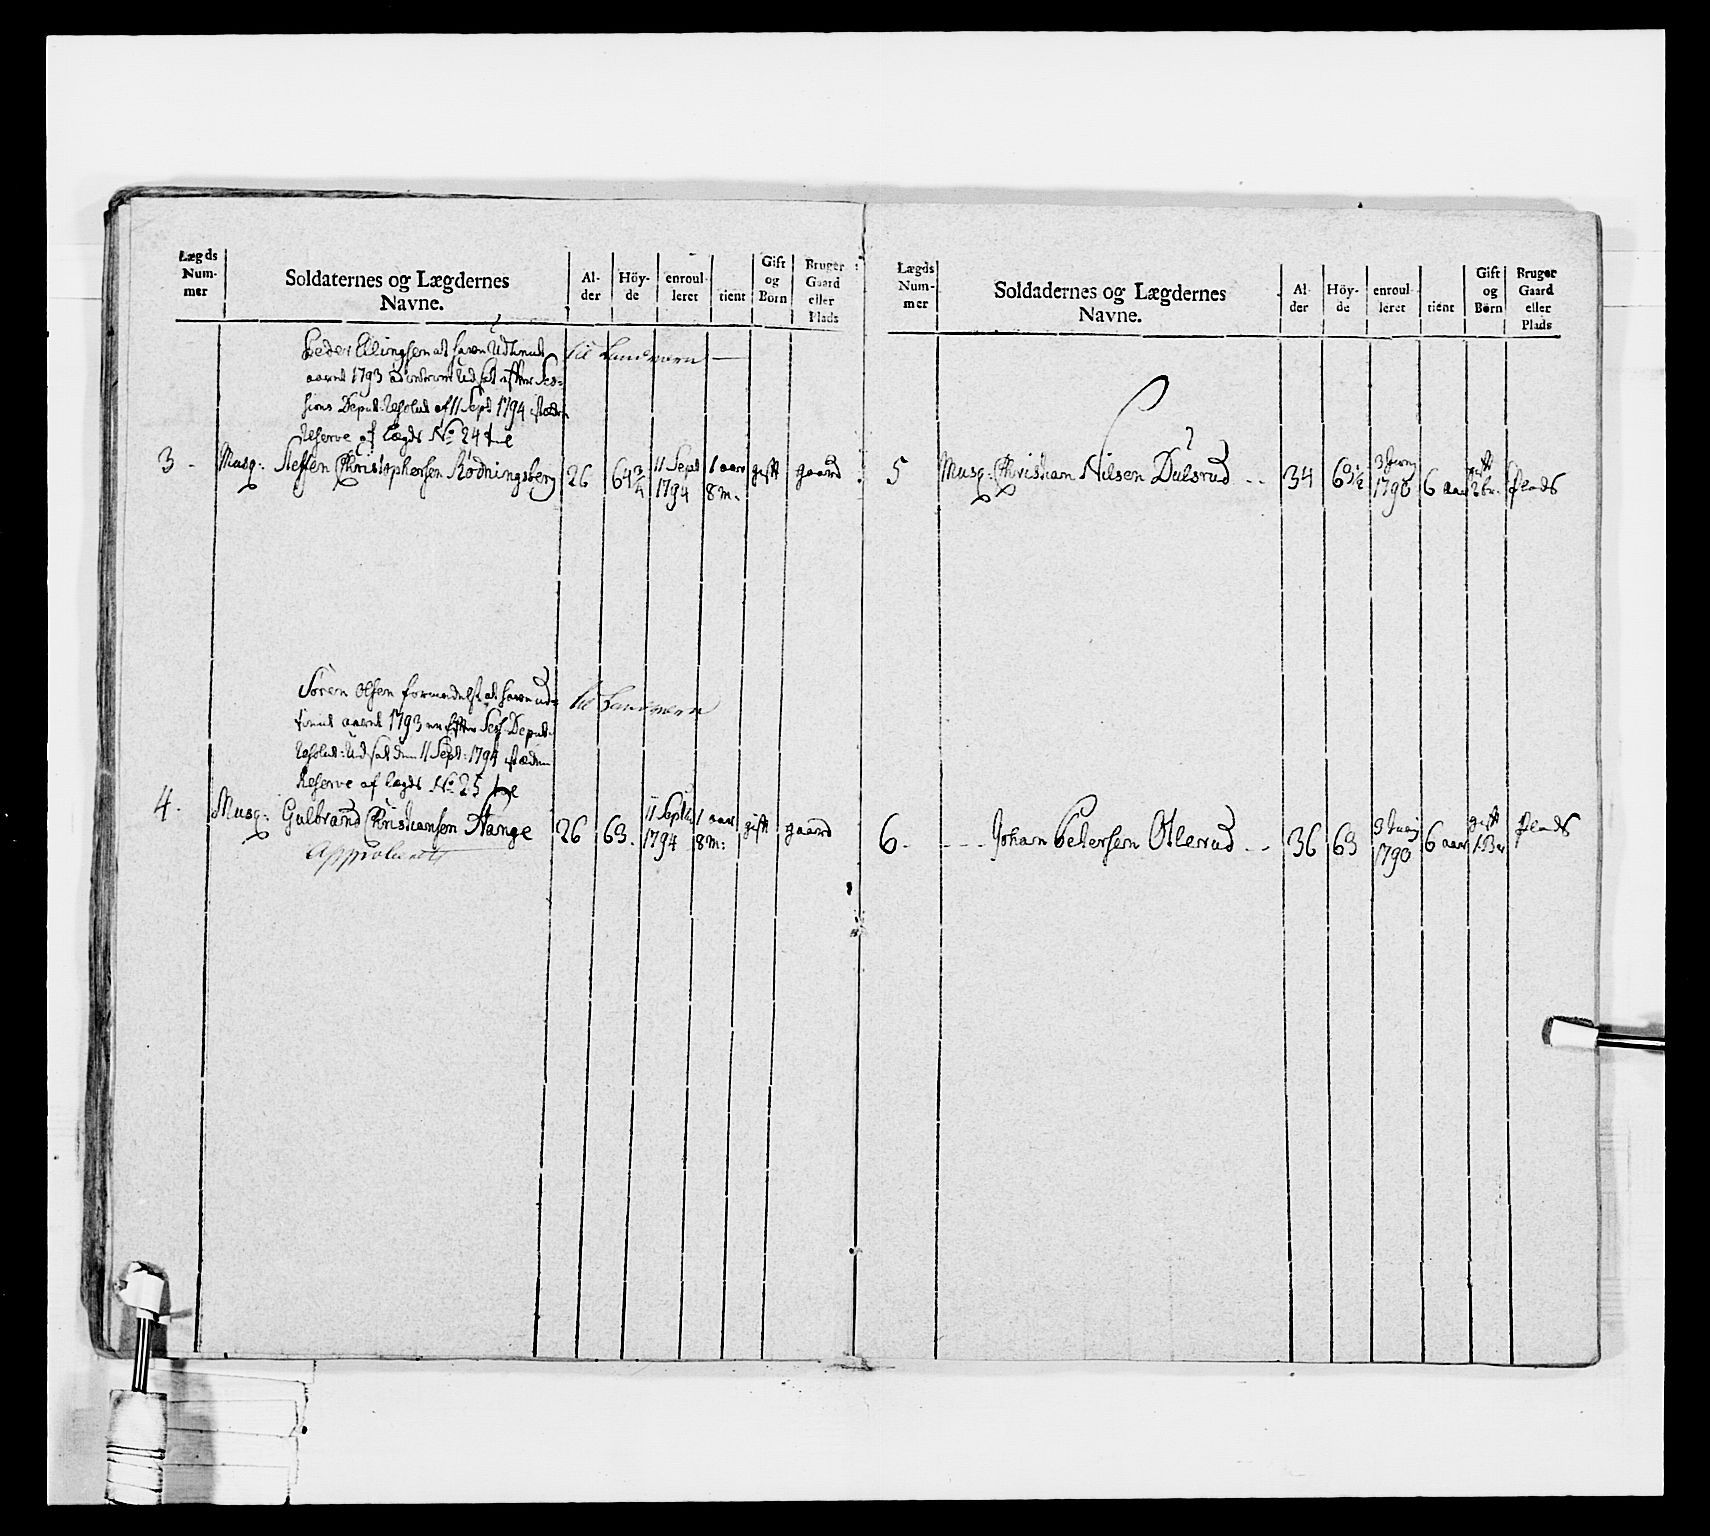 Lægds
Num-
mer
Soldaternes og Lægdernes
Navne.
Al-
der
Höy-
de
enroul-
leret
tient
Gift
og
Børn
Bruger
Gaard
eller
Plads
Peder at haver Udtient
aaret 1793 Udsat efter Ses-
sions Deput: Resolut af 11 Sept 1794 istæden
Reserve af Lægds No 24
til Landværn
3 - Musq: Steffen Christophersen Rødningsberg 26 64¾ 11 Sept 1794 1 aar 8 m. gift gaard
Søren Olsen formedelst at haver ud-
tient aaret 1793 er efter Ses: Deput:
Resolut: Udsat den 11 Sept: 1794 istæden
Reserve af Lægds No 25
til Landværn
4. Musq: Gulbrand Christiansen Stange 26 63. 11 Sept 1794 1 aar 8 m: gift gaard
Lægds
Num-
mer
Soldadernes og Lægdernes
Navne.
Al-
der
Höy-
de
enroul-
leret
tient
Gift
og
Børn
Bruger
Gaard
eller
Plads
5 Musq: Christian Nilsen Dulsrud -- 34 63½ 3 Juny 1790 6 aar gift 2 br. plads
6. --- Johan Pedersen Ollerud -- 36 63 3 Juny 1790 6 aar gift 1 Br plads